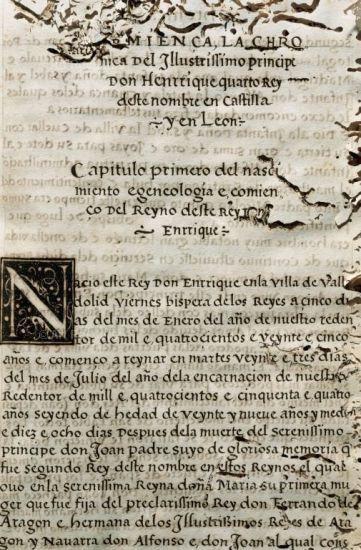 MIENCA, LA CHRO
nica Del Illustrissimo principe
Don Henrrique quarto Rey
deste nombre en Castilla
~y en Leon:~
Capitulo primero del nasci
miento e gencologia e, comien
co Del Reyno deste Rey Don
~ Enrrique :~
Nacio este Rey Don Enrrique enla villa de Vall
dolid viernes bispera delos Reyes a cinco di
as del mes de Enero del año de nuestro reden
tor de mil e, quatrocientos e veynte e cinco
años e, comenco a reynar en martes veynte e, tres dias
del mes de Julio del año dela encarnacion de nuestro
Redentor de mill e, quatrocientos e, cinquenta e, quatro
años Seyendo de hedad de veynte y nueve años y medio
e diez e, ocho dias Despues dela muerte del Serenissimo
principe don Joan padre suyo de gloriosa memoria q
fue Segundo Rey deste nombre en estos Reynos el qual
ouo en la serenissima Reyna doña Maria su primera mu
ger que fue fija del preclarissimo Rey don Ferrando de
Aragon e, hermana delos Illustrissimos Reyes de Ara
gon y Navarra don Alfonso e, don Joan al qual cons